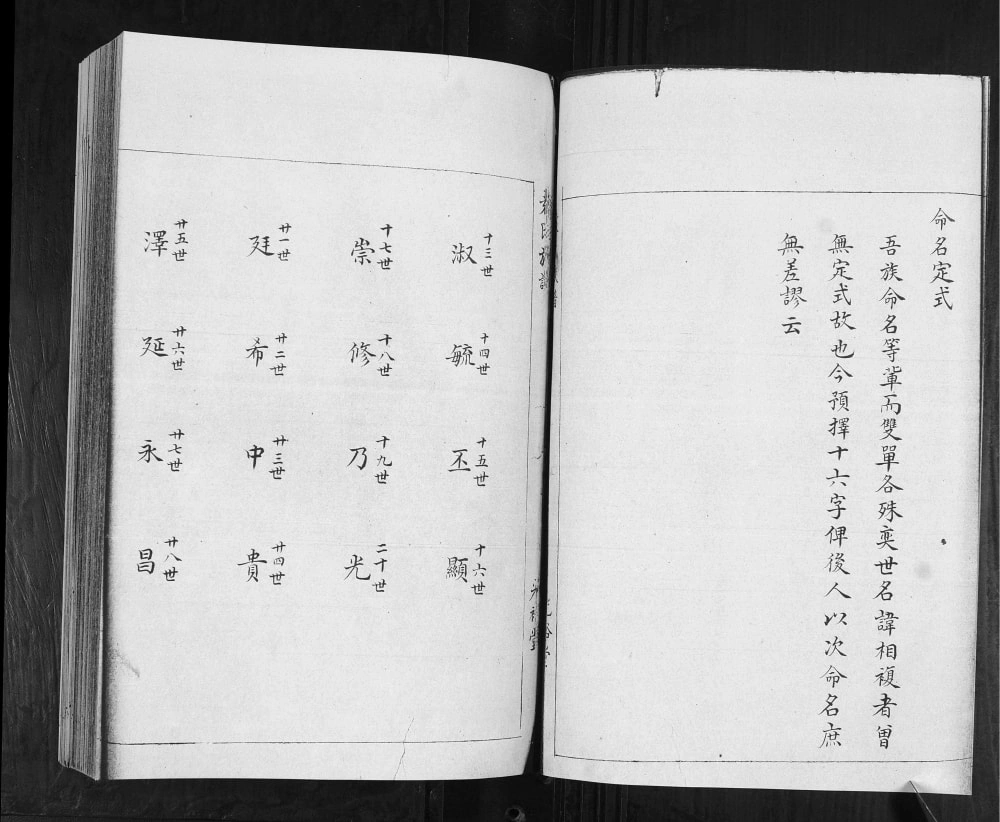 命名定式
吾族命名等軰而雙單各殊奕世名諱相複者曽
無定式故也今預擇十六字俾後人以次命名庶
無差謬云
十三世 淑
十四世 毓
十五世 丕
十六世 顯
十七世 崇
十八世 修
十九世 乃
二十世 光
廿一世 廷
廿二世 希
廿三世 中
廿四世 貴
廿五世 澤
廿六世 延
廿七世 永
廿八世 昌